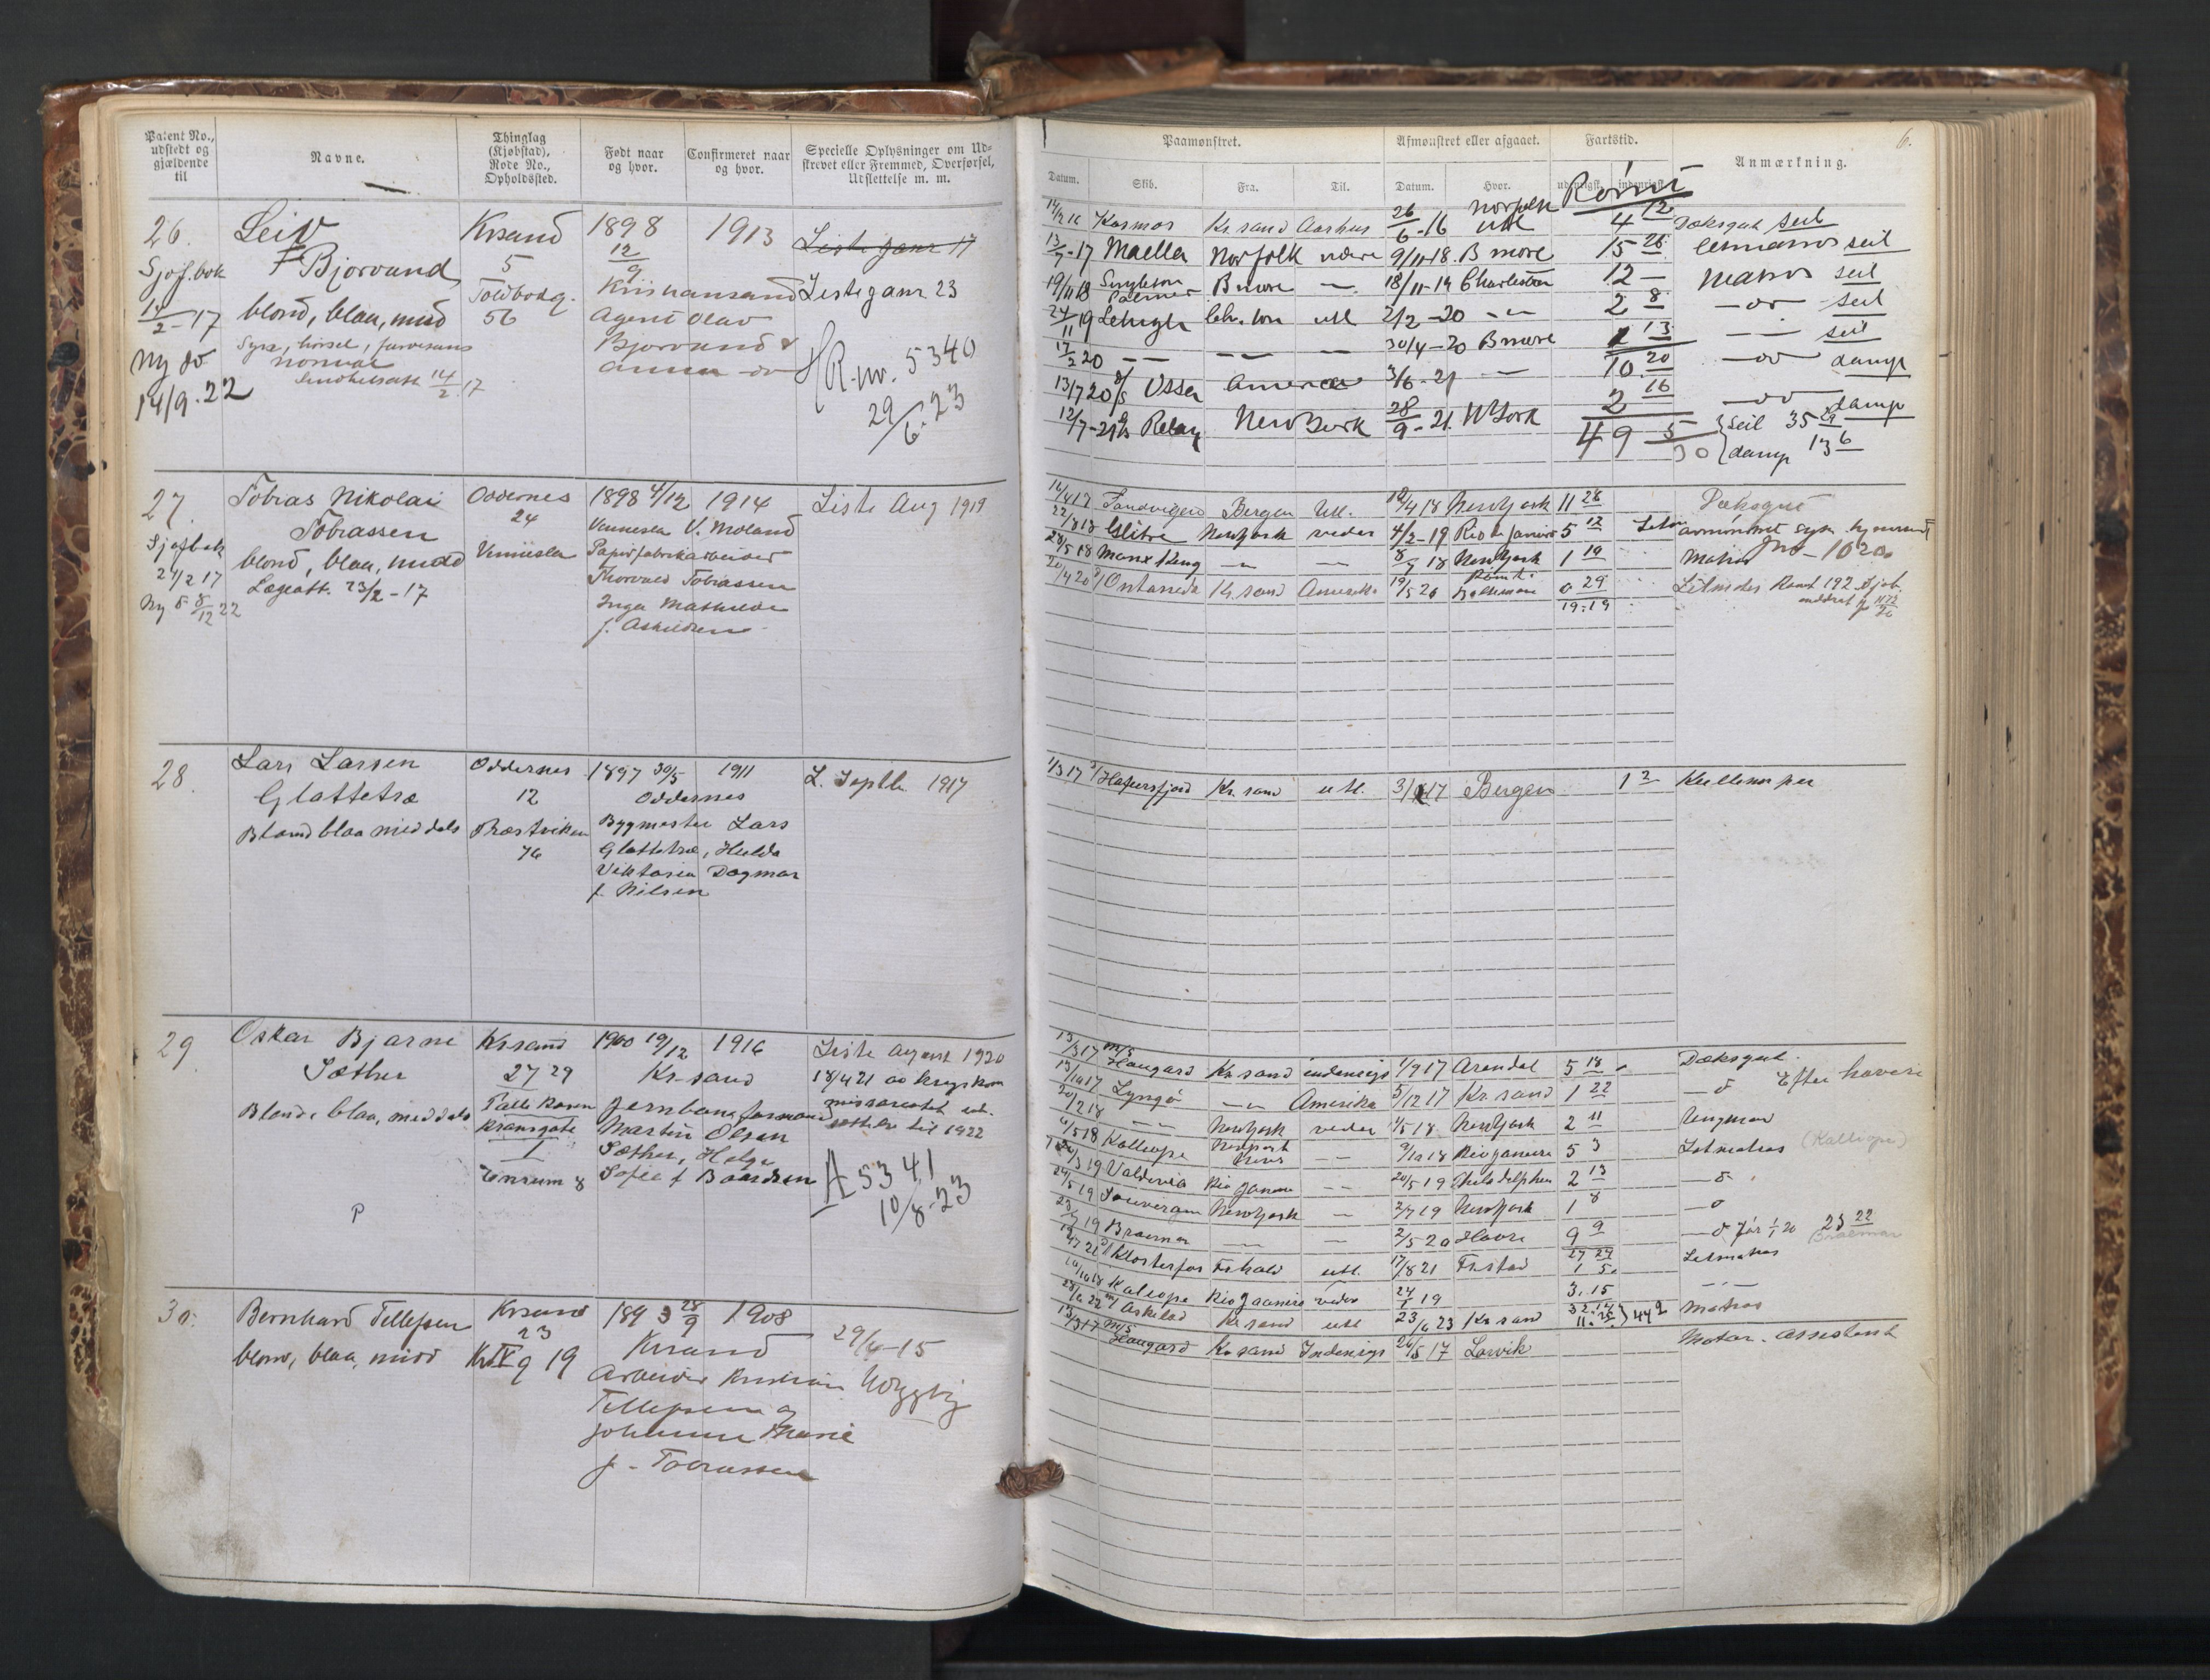 Patent No., udstedt og gjældende til
Navne.
Thinglag (Kjøbstad), Rode No., Opholdssted.
Født naar og hvor.
Confirmeret naar og hvor.
Specielle Oplysninger om Udstrevet eller Fremmed, Overførsel, Udslettelse m. m.
26.
Sjøf.bok
14/2-17
ny do
14/9.22
Leiv
Bjorvand
blond, blaa, mid
normal
14/2 17
Krsand
5
Toldbodg.
56
1898
12/9
Kristiansand
Agent Olav
Bjorvand &
Anna do
1913
Liste janr 17
Liste janr 23
R.nr. 5340
29/6.23
27
Sjøfbok
24/2 17
Ny d 8/12 22
Tobias Nikolai
Tobiassen
blond, blaa, midd
Lægeatt. 23/2-17
Oddernes
24
Vennesla
1898 4/12 1914
Vennesla V. Moland
Papirfabrikarbeider
Thorvald Tobiassen
Inga Mathilde
f. Askildsen
Liste Aug 1919
28
Lars Larsen
Glattetræ
Blond blaa middels
Oddernes
12
Præstviken
76
1897 30/5 1911
Oddernes
Bygmester Lars
Glattetræ, Hulda
Viktoria Dagmar
f. Nilsen
L. Septbr. 1917
29
Oskar Bjarne
Sæther
Blond, blaa, middels
P
Krsand
27 29
Kransgate
1
1900 19/12 1916
Kr.sand
Jernbaneformand
Martin Olsen
Sæther, Helga
Sofie f Baardsen
Liste August 1920
18/4 21 av krigskom
til 1922
A 5341
10/8-23
30.
Bernhard Tellefsen
blond, blaa, midd
Krsand
23
Kr IV g 19
1893 28/9 1908
Krsand
Arbeider Kristian
Tellefsen og
Johanne Marie
f. Tobiassen
29/4-15
6.
Paamønstret.
Afmønstret eller afgaaet.
Fartstid.
Anmærkning.
Datum.
Skib.
Fra.
Til.
Datum.
Hvor.
udenrigsk.
indenrigsk.
Rømt
Kosmos Kr.sand Aarhus 26/6-16 Norfolk utl 4 12 Dæksgut seil
13/7-17 Maella Norfolk videre 9/11-18. Bmore 15 26 seil
19/11 18 Singleton Palmer Bmore — 18/11-19 Charleston 12 — Matros seil
24/11 19 Lehigh utl 2/2-20 — 2 8 —do— seil
17/2 20 — — — 30/4-20 Bmore 2 13 — seil
13/7 20 Ossa America 3/6-21 — 10.20 —do— damp
12/7-21 Relay New York 28/9-21. N York 2 16 —do— damp
49 5
seil 35 29
damp 13 6
Sandvigen Bergen Utl. 18 New York 11 28 Dæksgut
Glitre New York videre 4/2-19 Rio de Janeiro 5 12
28/5 18 Manx King — — 18 New York 1 19 Matros
20/4 20 Ontaneda Kr.sand Amerika 19/5 20 Rømt i Baltimore 0 29
19.19
1/3 17 Hafursfjord Kr.sand utl. 3/ 17 Bergen 1 2 Kullemper
13/3 17 m/s Haugard Kr.sand indenrigs 1/9 17 Arendal 5 18 Dæksgut.
13/10 17 Lyngö — Amerika 5/12 17 Kr.sand 1 22 —d Efter havari
20/2 18 — New York videre 1/5 18 New York 2 11 Ungmand
6/5 18 Kalliope Newport News — 9/10 18 Rio Janeiro 5 3 Letmatros (Kalliope)
19 Valdivia Rio Janeiro — 20/5 19 Philadelphia 2 13 —d
24/5 19 Souvergn New York — 2/7 19 New York 1 8 —d
19 Braemar — — 2/5 20 Havre 9 9 —d før 1/1 20 23 22 (Braemar
27 27
21 Klosterfos Frhald utl. 17/8 21 Frstad 1 5 Letmatros
10/10 18 Kaliope Rio Janeiro videre 24/1 19 3.15 — —
28/6 22 m/ Askelad Kr.sand utl 23/6 23 Kr.sand 44 2 Matros
13/3 17 m/s Haugard Kr.sand Indenrigs 26/5 17 Larvik Motor.assistent